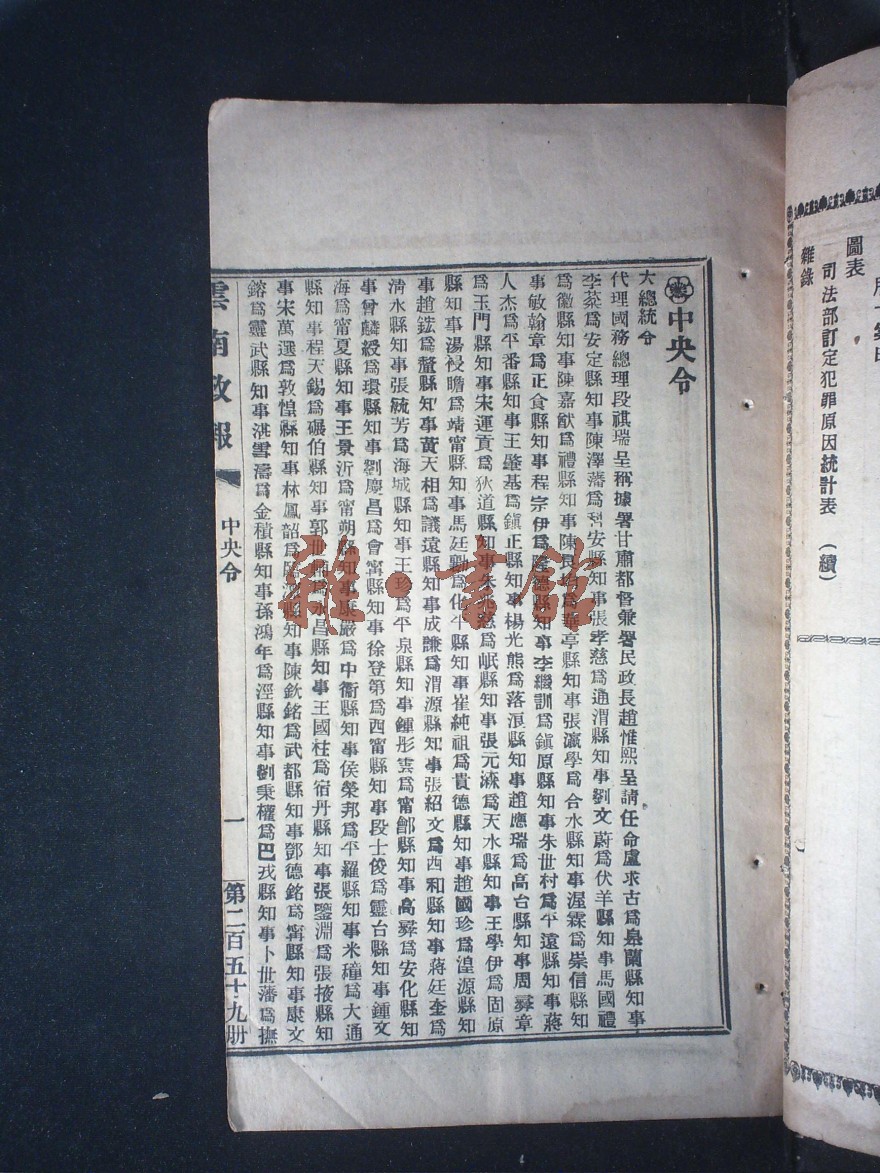 圖表
司法部訂定犯罪原因統計表 (續)
雜錄
中央令
大總統令
代理國務總理段祺瑞呈稱據署甘肅都督兼署民政長趙惟熙呈請任命盧求古爲皋蘭縣知事
李蔡爲安定縣知事陳澤藩爲安縣知事張孝慈爲通渭縣知事劉文蔚爲伏羊縣知事馬國禮
爲徽縣知事陳嘉猷爲禮縣知事陳長均爲華亭縣知事張瀛學爲合水縣知事渥霖爲崇信縣知
事敏翰章爲正食縣知事程宗伊爲隆德縣知事李繼訓爲鎭原縣知事朱世村爲平遠縣知事蔣
人杰爲平番縣知事王肇基爲鎭正縣知事楊光熊爲落浪縣知事趙應瑞爲高台縣知事周舜章
爲玉門縣知事宋運貢爲狄道縣知事朱慈爲岷縣知事張元潫爲天水縣知事王學伊爲固原
縣知事湯祲瞻爲靖甯縣知事馬廷勷爲化平縣知事崔純祖爲貴德縣知事趙國珍爲湟源縣知
事趙鋐爲釐縣知事黃天相爲議遠縣知事成謙爲渭源縣知事張紹文爲西和縣知事蔣廷奎爲
淸水縣知事張毓芳爲海城縣知事王珍爲平泉縣知事鍾彤雲爲甯郡縣知事高舜爲安化縣知
事曾麟綬爲環縣知事劉慶昌爲會甯縣知事徐登第爲西甯縣知事段士俊爲靈台縣知事鍾文
海爲甯夏縣知事王景沂爲甯朔縣知事康嚴爲中衞縣知事侯榮邦爲平羅縣知事米穜爲大通
縣知事程天錫爲碾伯縣知事郭爲永昌縣知事王國柱爲宿丹縣知事張鑒淵爲張掖縣知
事宋萬選爲敦煌縣知事林鳳韶爲臨洮縣知事陳欽銘爲武都縣知事鄧德銘爲甯縣知事康文
鎔爲靈武縣知事湛雪濤爲金積縣知事孫鴻年爲涇縣知事劉秉權爲巴戎縣知事卜世藩爲撫
雲南政報
中央令
一
第二百五十九册
雜·書館